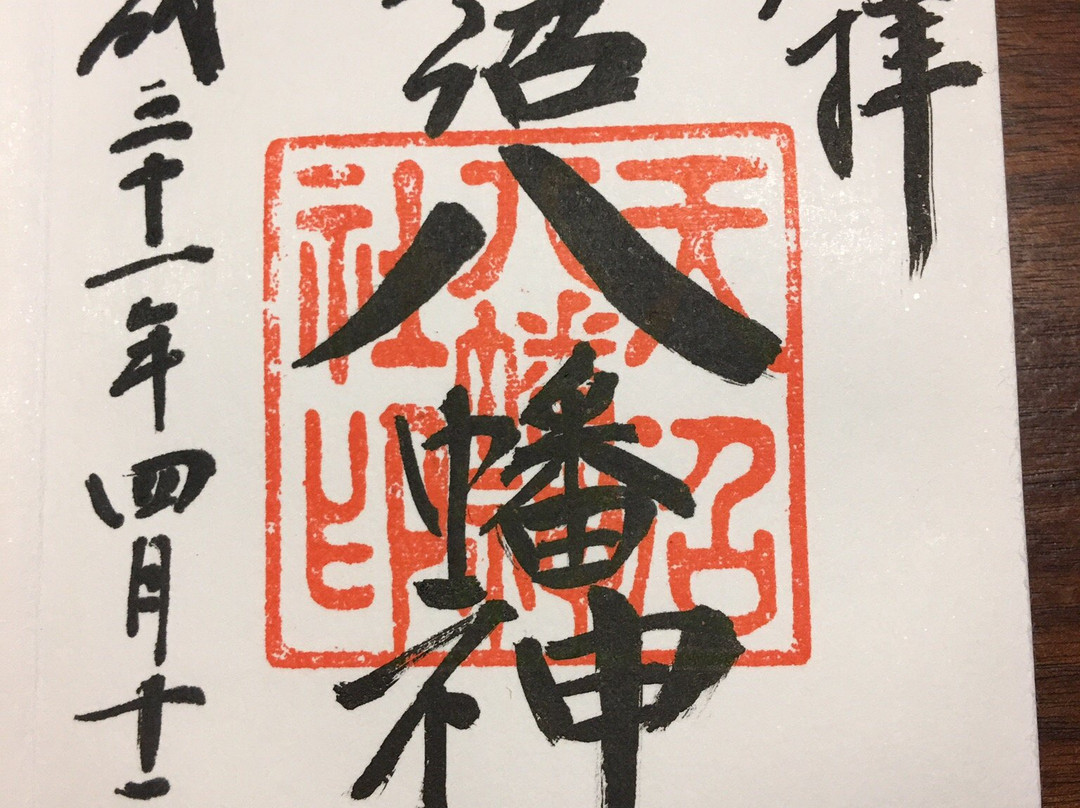 拝
沼八幡神
成三十一年四月十
天沼
八幡神
社印